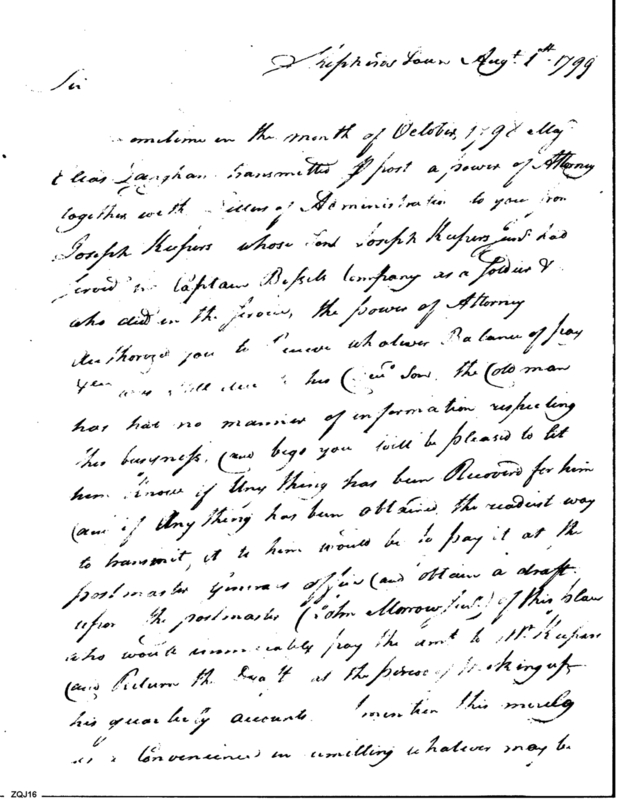 Shepherds Town Augt. 1st. 1799
Sir
Sometime in the month of October, 1798 Majr
Elias Langham transmitted P post a power of Attorney
together with Letters of Administration to you from
Joseph Keepers whose Son Joseph Keepers Junr had
served in Captain Bissels Company as a Soldier &
who died in the service, the power of Attorney
Authorized you to Receive whatever Balance of pay
&ca was still due to his son, the Old man
has had no manner of information respecting
this busyness, and begs you will be pleased to let
him know if Any thing has been Received for him
and if Any thing has been obtained, the readiest way
to transmit, it to him would be to pay it at the
postmaster Generals office and obtain a draft
upon the postmaster (John Morrow) of this place
who would immediately pay the amt to Mr Keepers
and Return the at the period of making up
his quarterly accounts I mention this merely
as a Convenience in remitting whatever may be
ZQJ16